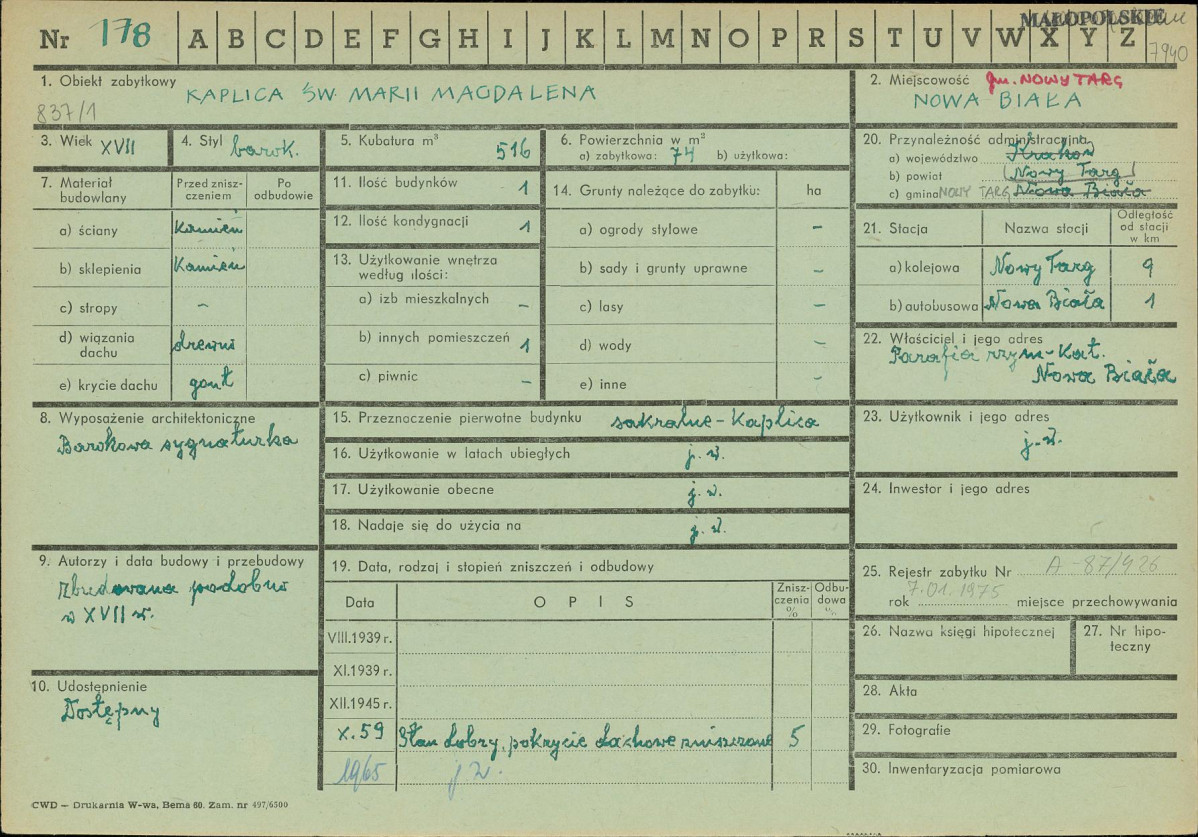 MAŁOPOLSKIE
Nr 178 A B C D E F G H I J K L M N O P R S T U V W X Y Z
7940
1. Obiekt zabytkowy
KAPLICA ŚW. MARII MAGDALENA
837/1
2. Miejscowość gm. NOWY TARG
NOWA BIAŁA
3. Wiek XVII
4. Styl barok.
5. Kubatura m³
516
6. Powierzchnia w m²
a) zabytkowa: 74 b) użytkowa:
20. Przynależność administracyjna
a) województwo Kraków
b) powiat (Nowy Targ)
c) gmina NOWY TARG Nowa Biała
7. Materiał budowlany
Przed znisz-
czeniem
Po
odbudowie
a) ściany kamień
b) sklepienia Kamień
c) stropy –
d) wiązania
dachu drewno
e) krycie dachu gont
11. Ilość budynków 1
12. Ilość kondygnacji 1
13. Użytkowanie wnętrza
według ilości:
a) izb mieszkalnych –
b) innych pomieszczeń 1
c) piwnic –
14. Grunty należące do zabytku: ha
a) ogrody stylowe –
b) sady i grunty uprawne –
c) lasy –
d) wody –
e) inne –
21. Stacja Nazwa stacji
Odległość
od stacji
w km
a) kolejowa Nowy Targ 9
b) autobusowa Nowa Biała 1
22. Właściciel i jego adres
Parafia rzym-Kat.
Nowa Biała
8. Wyposażenie architektoniczne
Barokowa sygnaturka
15. Przeznaczenie pierwotne budynku sakralne – Kaplica
16. Użytkowanie w latach ubiegłych j. w.
17. Użytkowanie obecne j. w.
18. Nadaje się do użycia na j. w.
23. Użytkownik i jego adres
j. w.
24. Inwestor i jego adres
9. Autorzy i data budowy i przebudowy
Zbudowana podobno
w XVII w.
10. Udostępnienie
Dostępny
19. Data, rodzaj i stopień zniszczeń i odbudowy
Data OPIS
Znisz-
czenia
%
Odbu-
dowa
%
VIII.1939 r.
XI.1939 r.
XII.1945 r.
X.59 Stan dobry, pokrycie dachowe zniszczone 5
1965 j w.
25. Rejestr zabytku Nr A-87/426
rok 7.01.1975 miejsce przechowywania
26. Nazwa księgi hipotecznej
27. Nr hipo-
teczny
28. Akta
29. Fotografie
30. Inwentaryzacja pomiarowa
CWD — Drukarnia W-wa, Bema 60. Zam. nr 497/6500